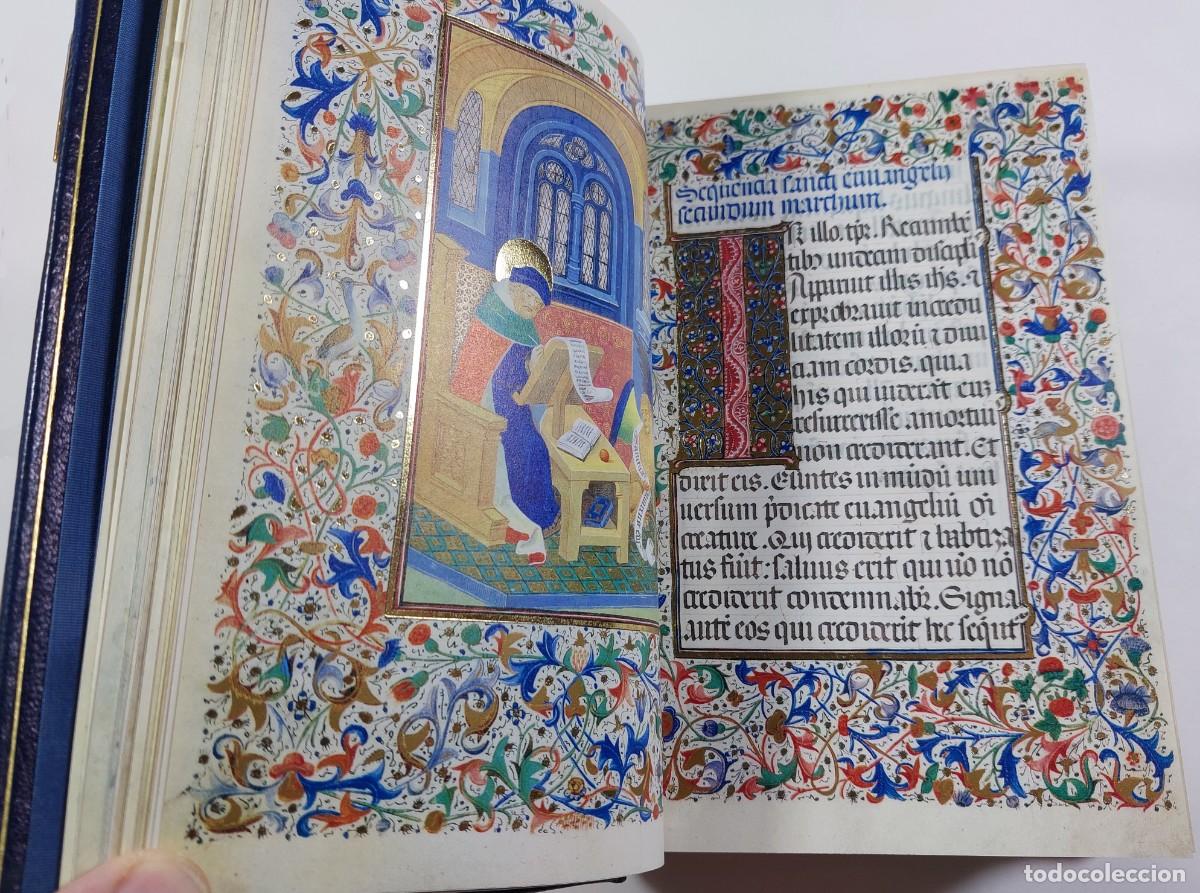 Sequencia sancti euuangelij
secundum marchum.
IN illo. tpr. Recumbē
tibꝰ undecim discipli
Apparuit illis ihs. ⁊
exprobrauit incredu
litatem illorū ⁊ duri
ciam cordis. quia
his qui uiderāt euz
resurrexisse. a mortui
non crediderant. Et
dixit eis. Euntes in mūdū uni
uersum p̄dicate euuangeliū oī
creature. Qui crediderit ⁊ baptiza
tus fūit: saluus erit qui uō nō
crediderit condemnabr̄. Signa
autē eos qui crediderīt hec sequt̄
todocoleccion